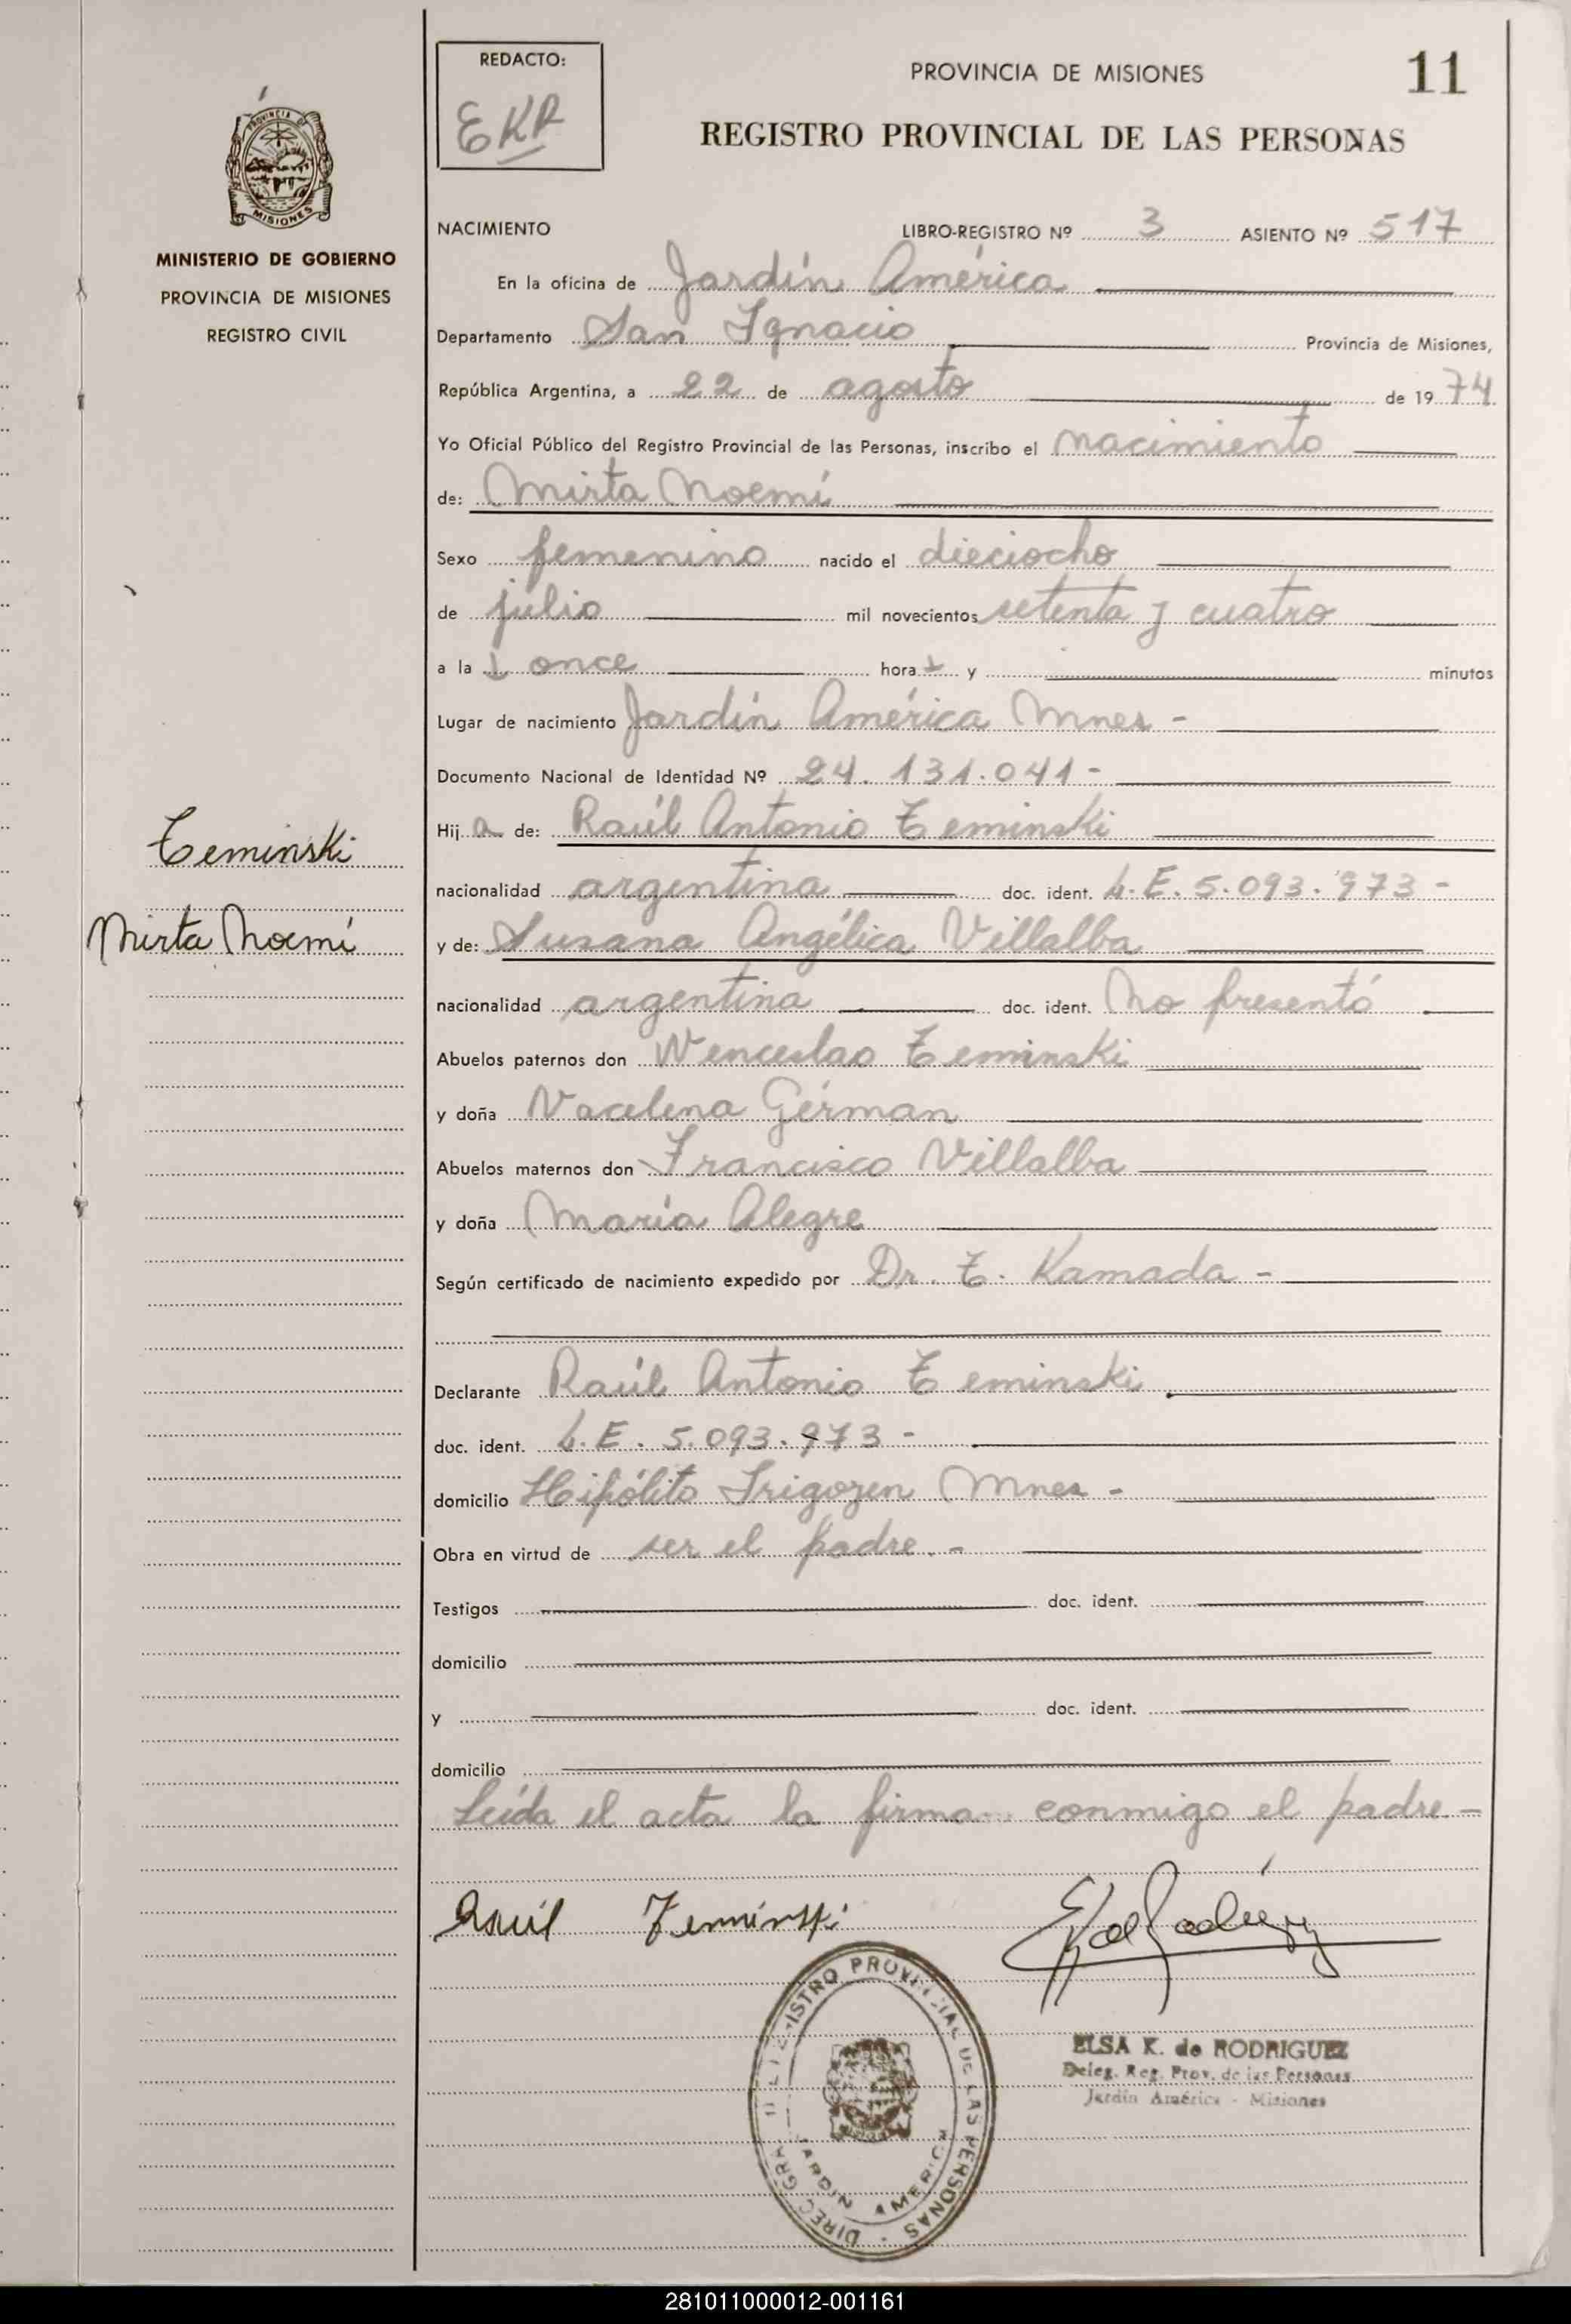 REDACTO:
EKR
PROVINCIA DE MISIONES
11
REGISTRO PROVINCIAL DE LAS PERSONAS
PROVINCIA DE
MISIONES
MINISTERIO DE GOBIERNO
PROVINCIA DE MISIONES
REGISTRO CIVIL
NACIMIENTO LIBRO-REGISTRO Nº 3 ASIENTO Nº 517
En la oficina de Jardín América
Departamento San Ignacio Provincia de Misiones,
República Argentina, a 22 de agosto de 1974
Yo Oficial Público del Registro Provincial de las Personas, inscribo el nacimiento
de: Mirta Noemí
Sexo femenino nacido el dieciocho
de julio mil novecientos setenta y cuatro
a las once horas y minutos
Lugar de nacimiento Jardín América Mnes -
Documento Nacional de Identidad Nº 24.131.041-
Hija de: Raúl Antonio Zeminski
Zeminski
nacionalidad argentina doc. ident. L.E. 5.093.973-
Mirta Noemí
y de: Susana Angélica Villalba
nacionalidad argentina doc. ident. No presentó
Abuelos paternos don Wenceslao Zeminski
y doña Vacelena Gérman
Abuelos maternos don Francisco Villalba
y doña María Alegre
Según certificado de nacimiento expedido por Dr. Z. Kamada -
Declarante Raúl Antonio Zeminski
doc. ident. L.E. 5.093.973-
domicilio Hipólito Irigoyen Mnes -
Obra en virtud de ser el padre.-
Testigos doc. ident.
domicilio
y doc. ident.
domicilio
Leída el acta la firma conmigo el padre-
Raúl Zeminski
ELSA K. de RODRIGUEZ
Deleg. Reg. Prov. de las Personas
Jardín América - Misiones
JARDIN AMERICA
281011000012-001161